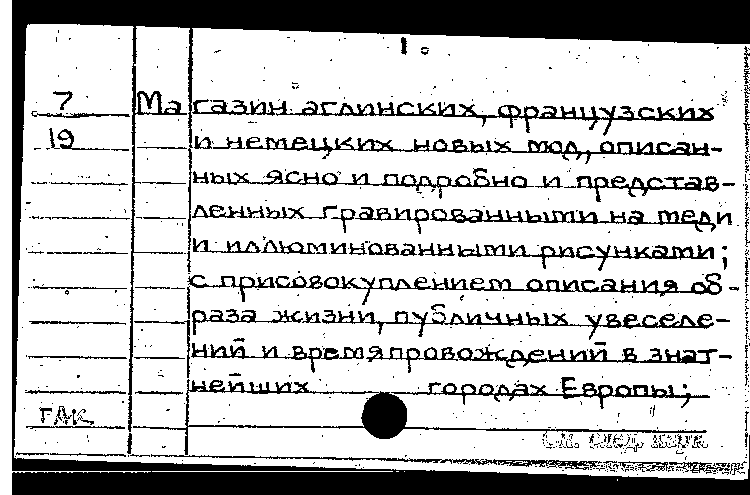 1.
7 Магазин аглинских, французских
19 и немецких новых мод, описан-
ных ясно и подробно и представ-
ленных гравированными на меди
и иллюминованными рисунками;
с присовокуплением описания об-
раза жизни, публичных увеселе-
ний и времяпровождений в знат-
нейших городах Европы;
ГАК
См. след. карт.